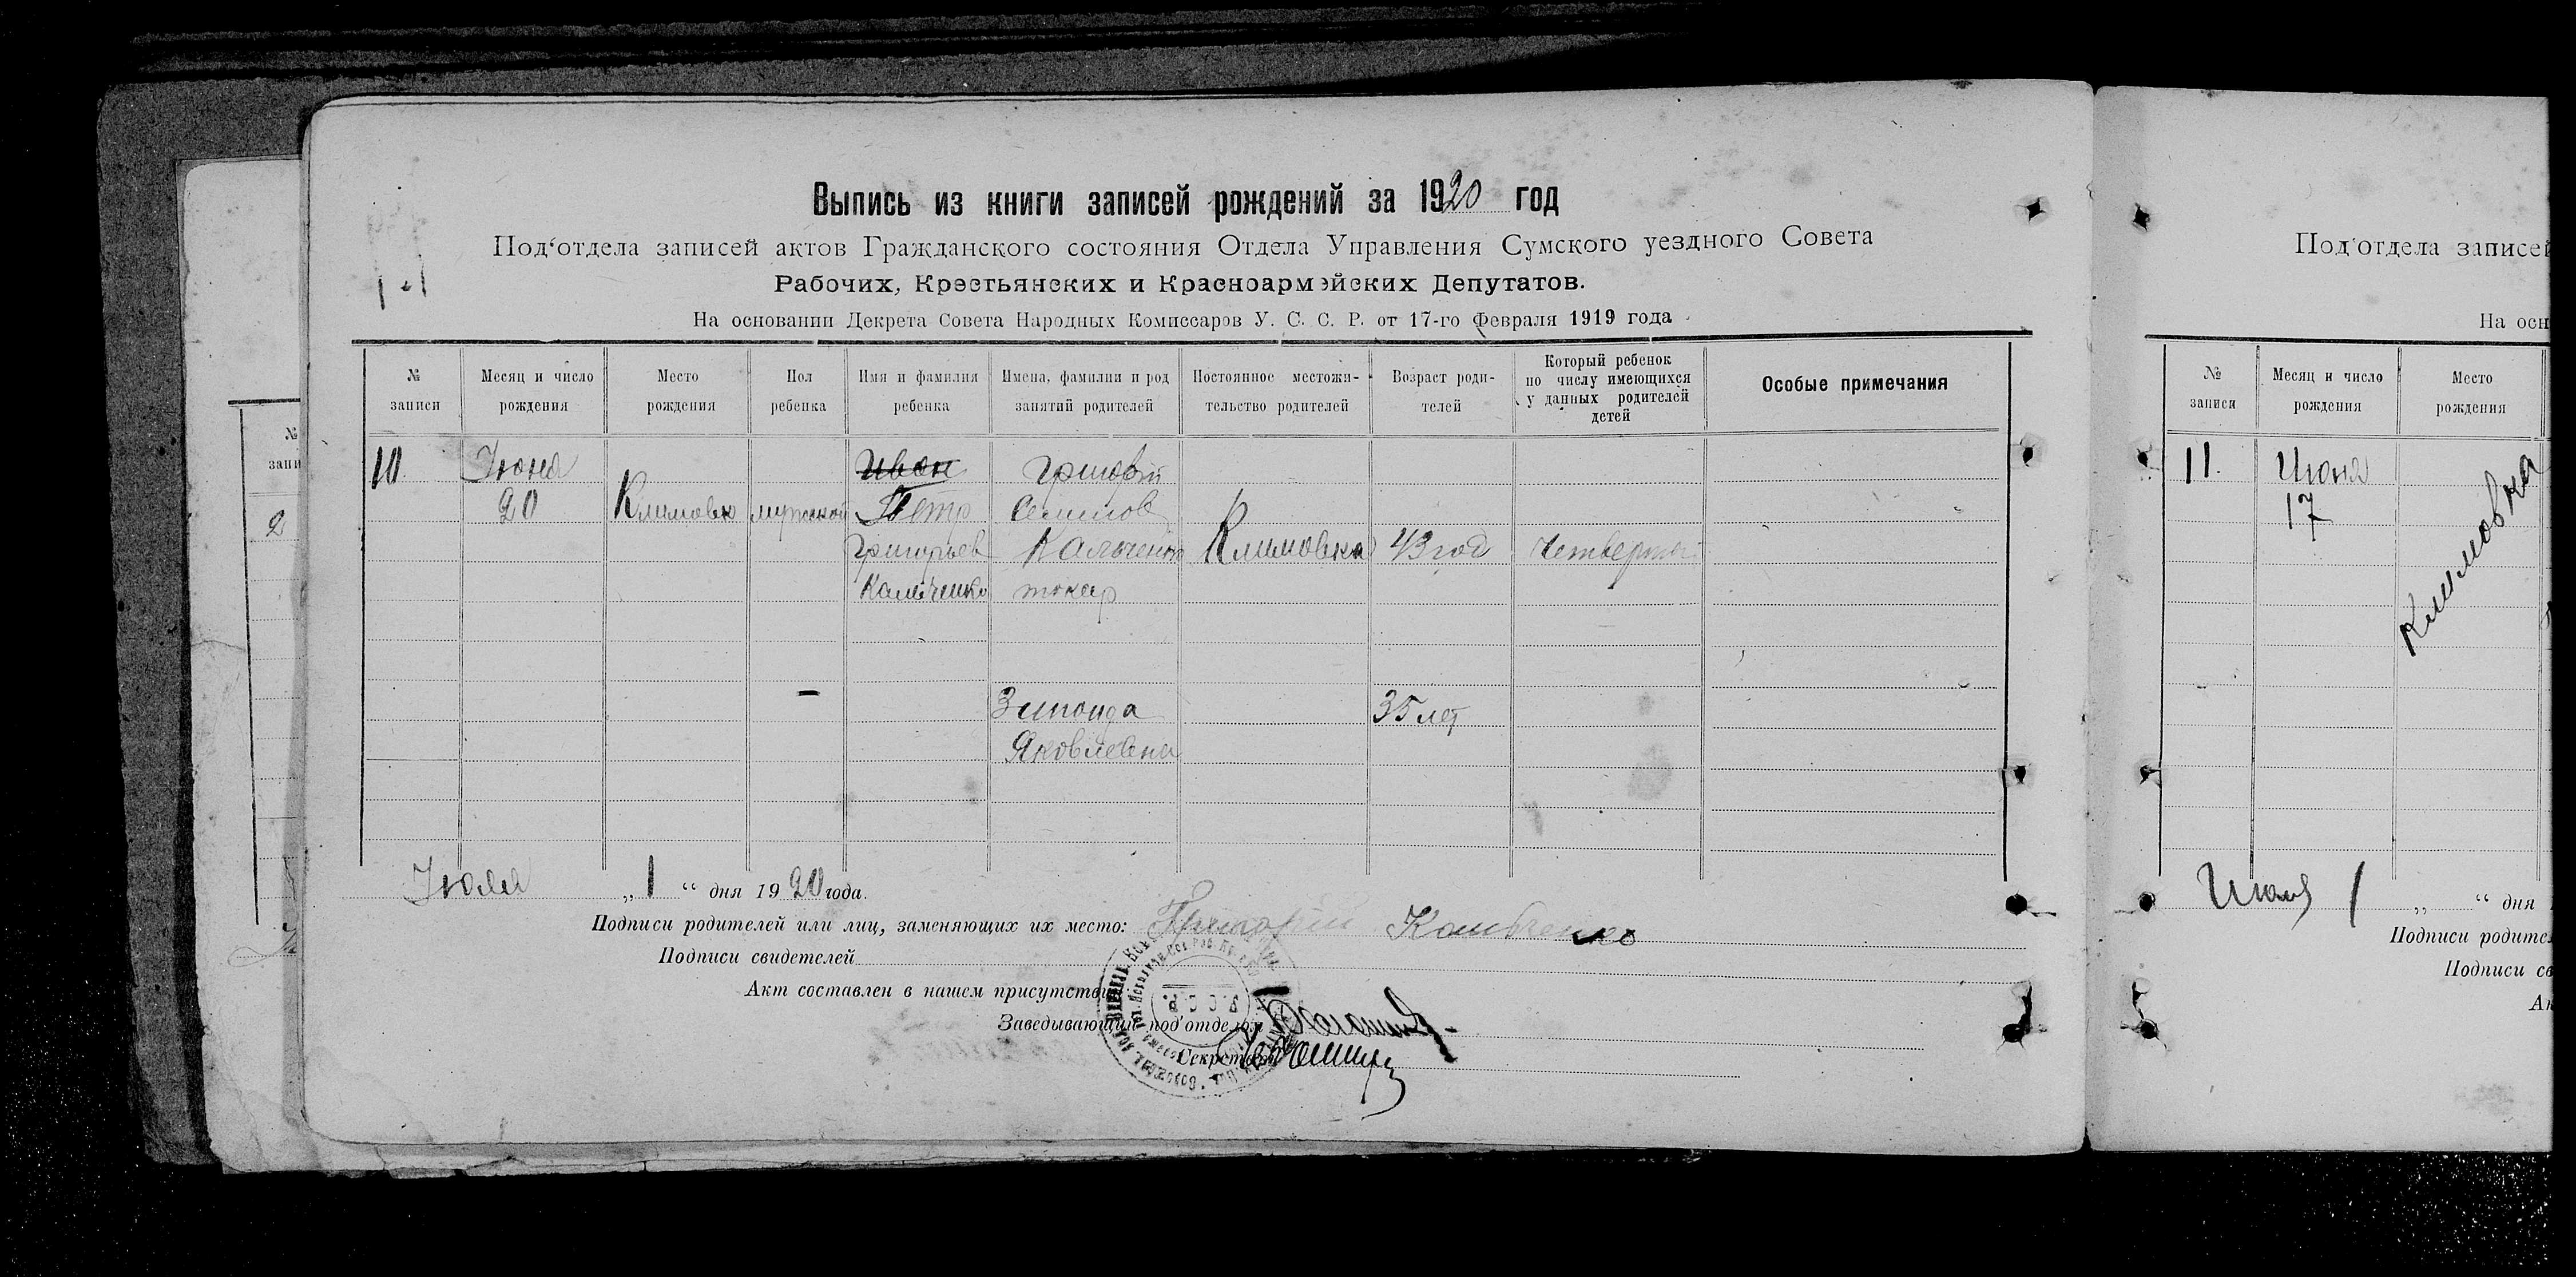 Выпись из книги записей рождений за 1920 год
Под‘отдела записей актов Гражданского состояния Отдела Управления Сумского уездного Совета
Рабочих, Крестьянских и Красноармэйских Депутатов.
На основании Декрета Совета Народных Комиссаров У. С. С. Р. от 17-го февраля 1919 года
№ записи
Месяц и число рождения
Место рождения
Пол ребенка
Имя и фамилия ребенка
Имена, фамилии и род занятий родителей
Постоянное местожительство родителей
Возраст родителей
Который ребенок по числу имеющихся у данных родителей детей
Особые примечания
10.
Июня
20
Климовка
мужской
Иван
Петр
Григорьев
Кальченко
Григорий
Семенов
Кальченко
токар
Климовка
43 год
Четвертый
Зинаида
Яковлевна
35 лет
Июля „1“ дня 1920 года.
Подписи родителей или лиц, заменяющих их место: Григорий Кальченко
Подписи свидетелей
Акт составлен в нашем присутствии
Заведывающий под‘отделом
Секретарь
№
запи
2
Под‘отдела записей
На осн
№ записи
Месяц и число рождения
Место рождения
11.
Июня
17
Климовка
Июля 1 „ “ дня
Подписи родител
Подписи св
Ак